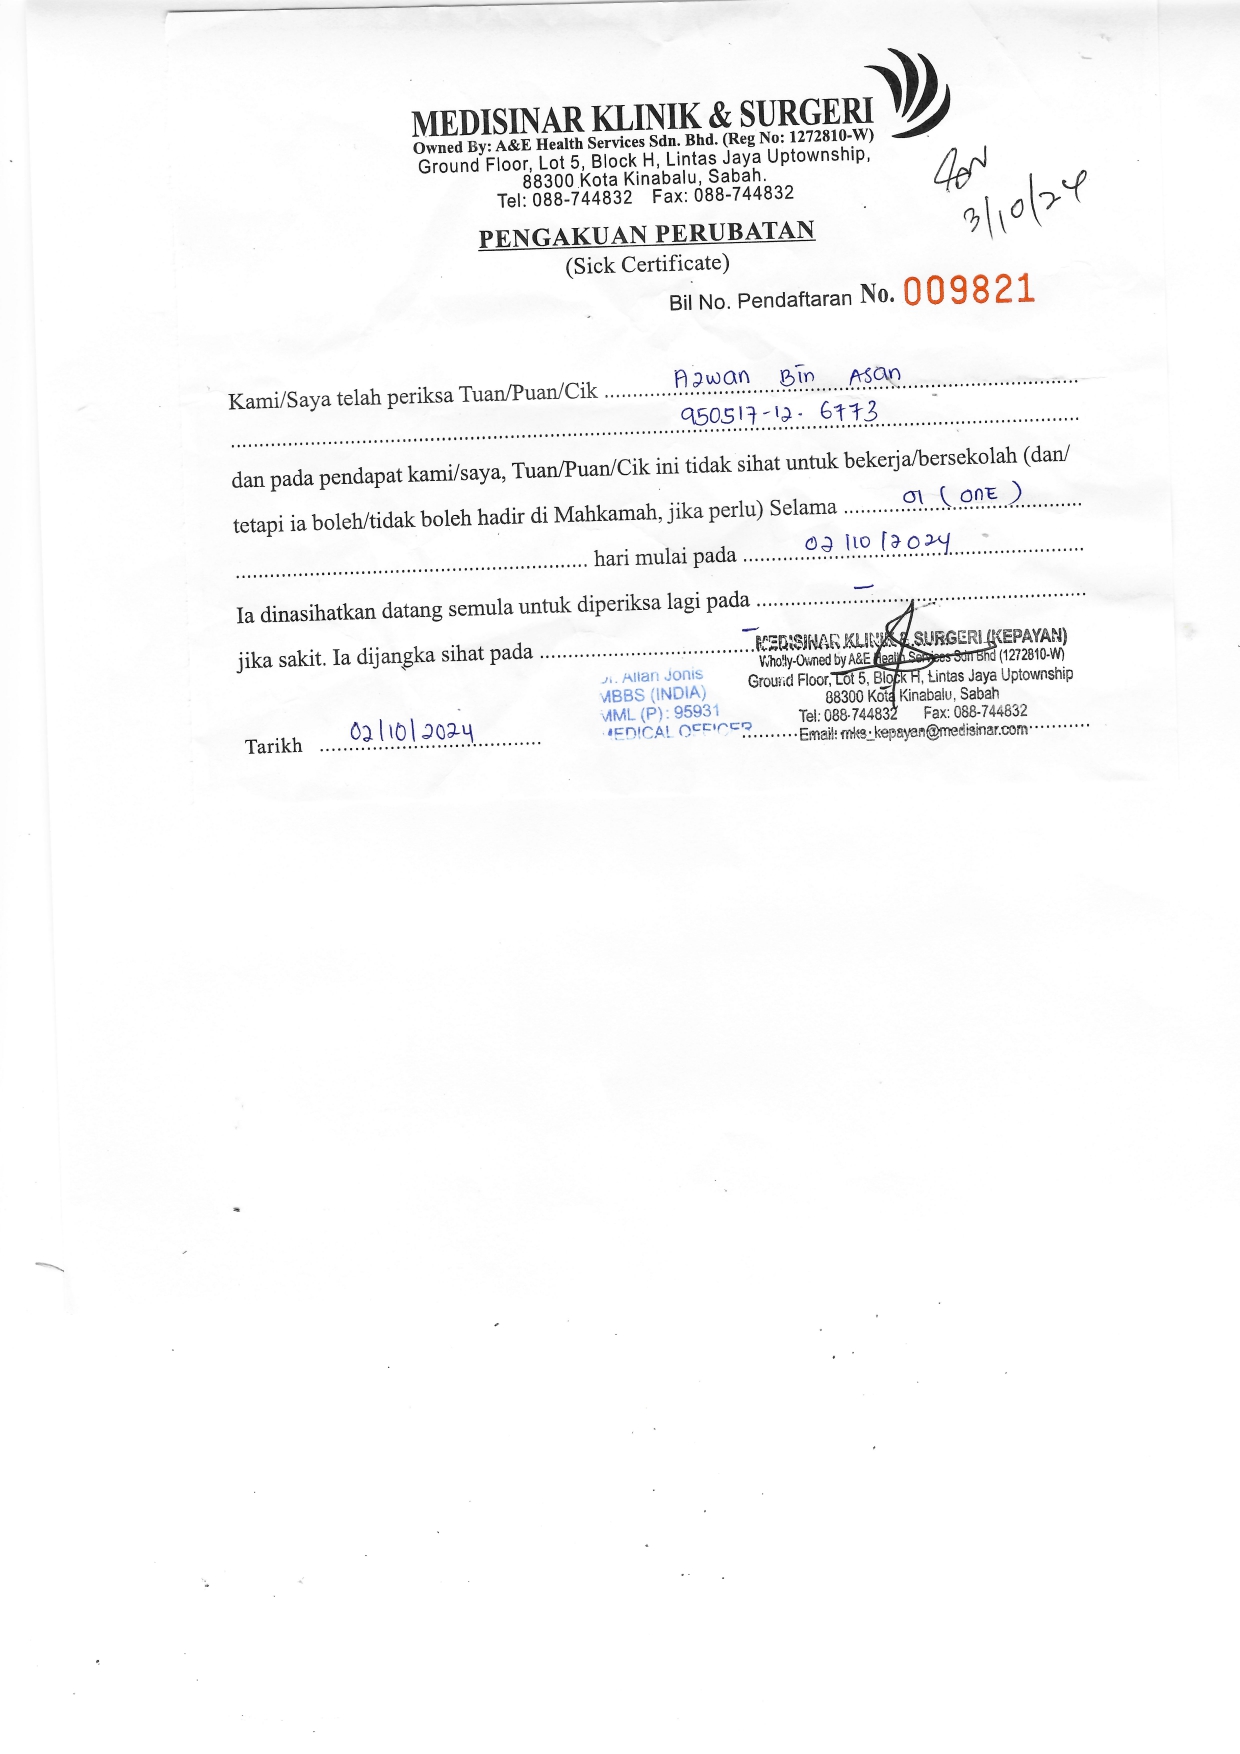 MEDISINAR KLINIK & SURGERI
Owned By: A&E Health Services Sdn. Bhd. (Reg No: 1272810-W)
Ground Floor, Lot 5, Block H, Lintas Jaya Uptownship,
88300 Kota Kinabalu, Sabah.
Tel: 088-744832 Fax: 088-744832
3/10/24
PENGAKUAN PERUBATAN
(Sick Certificate)
Bil No. Pendaftaran No. 009821
Kami/Saya telah periksa Tuan/Puan/Cik Azwan Bin Asan
950517-12-6773
dan pada pendapat kami/saya, Tuan/Puan/Cik ini tidak sihat untuk bekerja/bersekolah (dan/
tetapi ia boleh/tidak boleh hadir di Mahkamah, jika perlu) Selama 01 (ONE)
hari mulai pada 02/10/2024
Ia dinasihatkan datang semula untuk diperiksa lagi pada –
jika sakit. Ia dijangka sihat pada –
MEDISINAR KLINIK & SURGERI (KEPAYAN)
Wholly-Owned by A&E Health Services Sdn Bhd (1272810-W)
Ground Floor, Lot 5, Block H, Lintas Jaya Uptownship
88300 Kota Kinabalu, Sabah
Tel: 088-744832 Fax: 088-744832
Email: mks_kepayan@medisinar.com
Dr. Allan Jonis
MBBS (INDIA)
MML (P): 95931
MEDICAL OFFICER
Tarikh 02/10/2024